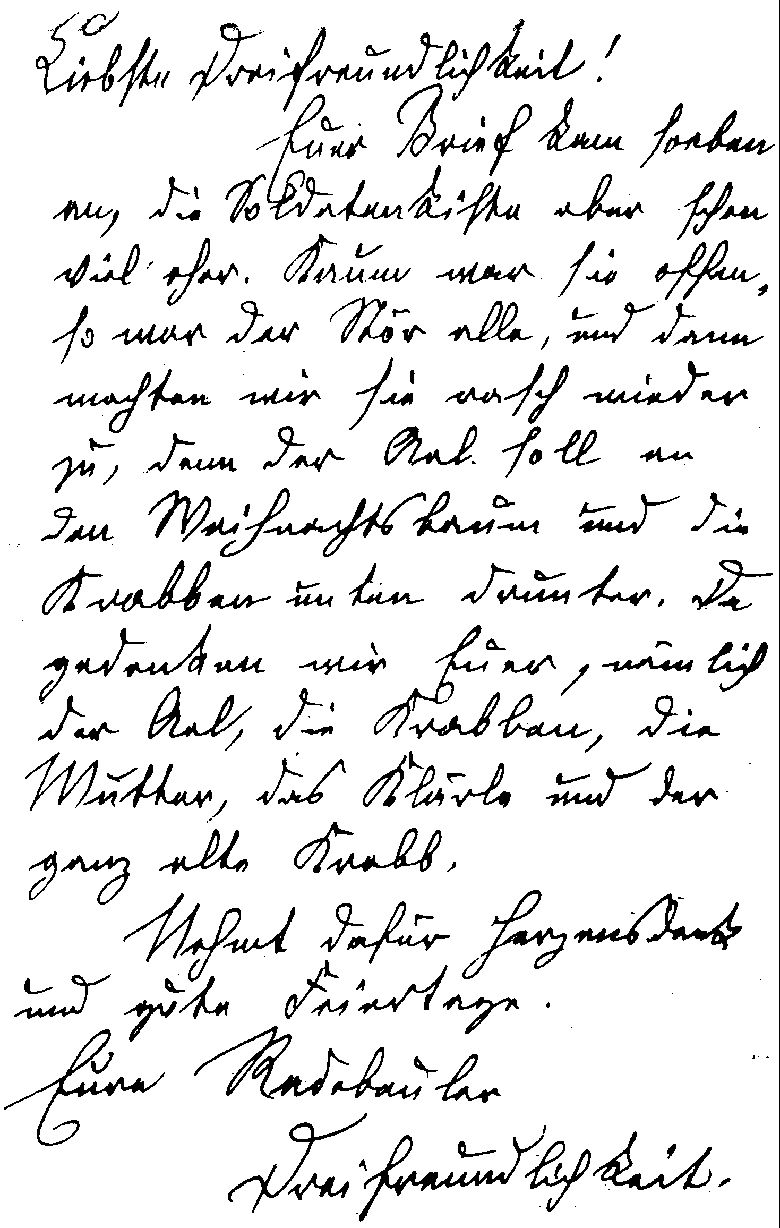 Liebste Dreifreundlichkeit!
Euer Brief kam soeben
an, die Soldatenkiste aber schon
viel eher. Kaum war sie offen,
so war der Stör alle, und dann
machten wir sie rasch wieder
zu, denn der Aal soll an
den Weihnachtsbaum und die
Krabben unten drunter. Da
gedenken wir Euer, nämlich
der Aal, die Krabben, die
Mutter, das Klärle und der
ganz alte Krabb.
Nehmt dafür Herzensdank
und gute Feiertage.
Eure Radebeuler
Dreifreundlichkeit.